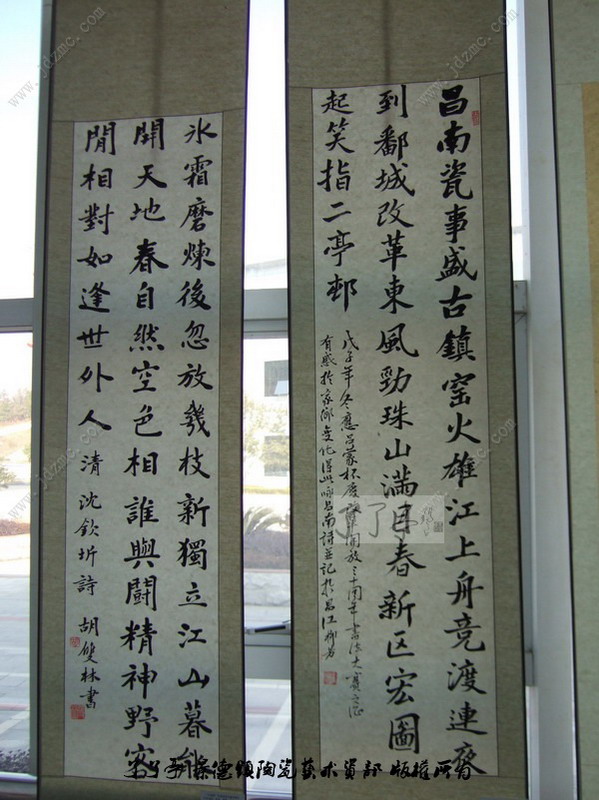 昌南瓷事盛古鎮窑火雄江上舟竞渡連夜
到鄱城改革東風勁珠山滿目春新区宏圖
起笑指二亭邨
戊子年冬應呂蒙杯慶改革開放三十周年書法大賽之征
有感於家鄉變化得此咏昌南詩並記於昌江
氷霜磨煉後忽放幾枝新獨立江山暮能
開天地春自然空色相誰與鬪精神野客
閒相對如逢世外人清沈欽圻詩
胡雙林書
www.jdzmc.com
www.jdzmc.com
景德鎮陶瓷藝术資部 版權所有